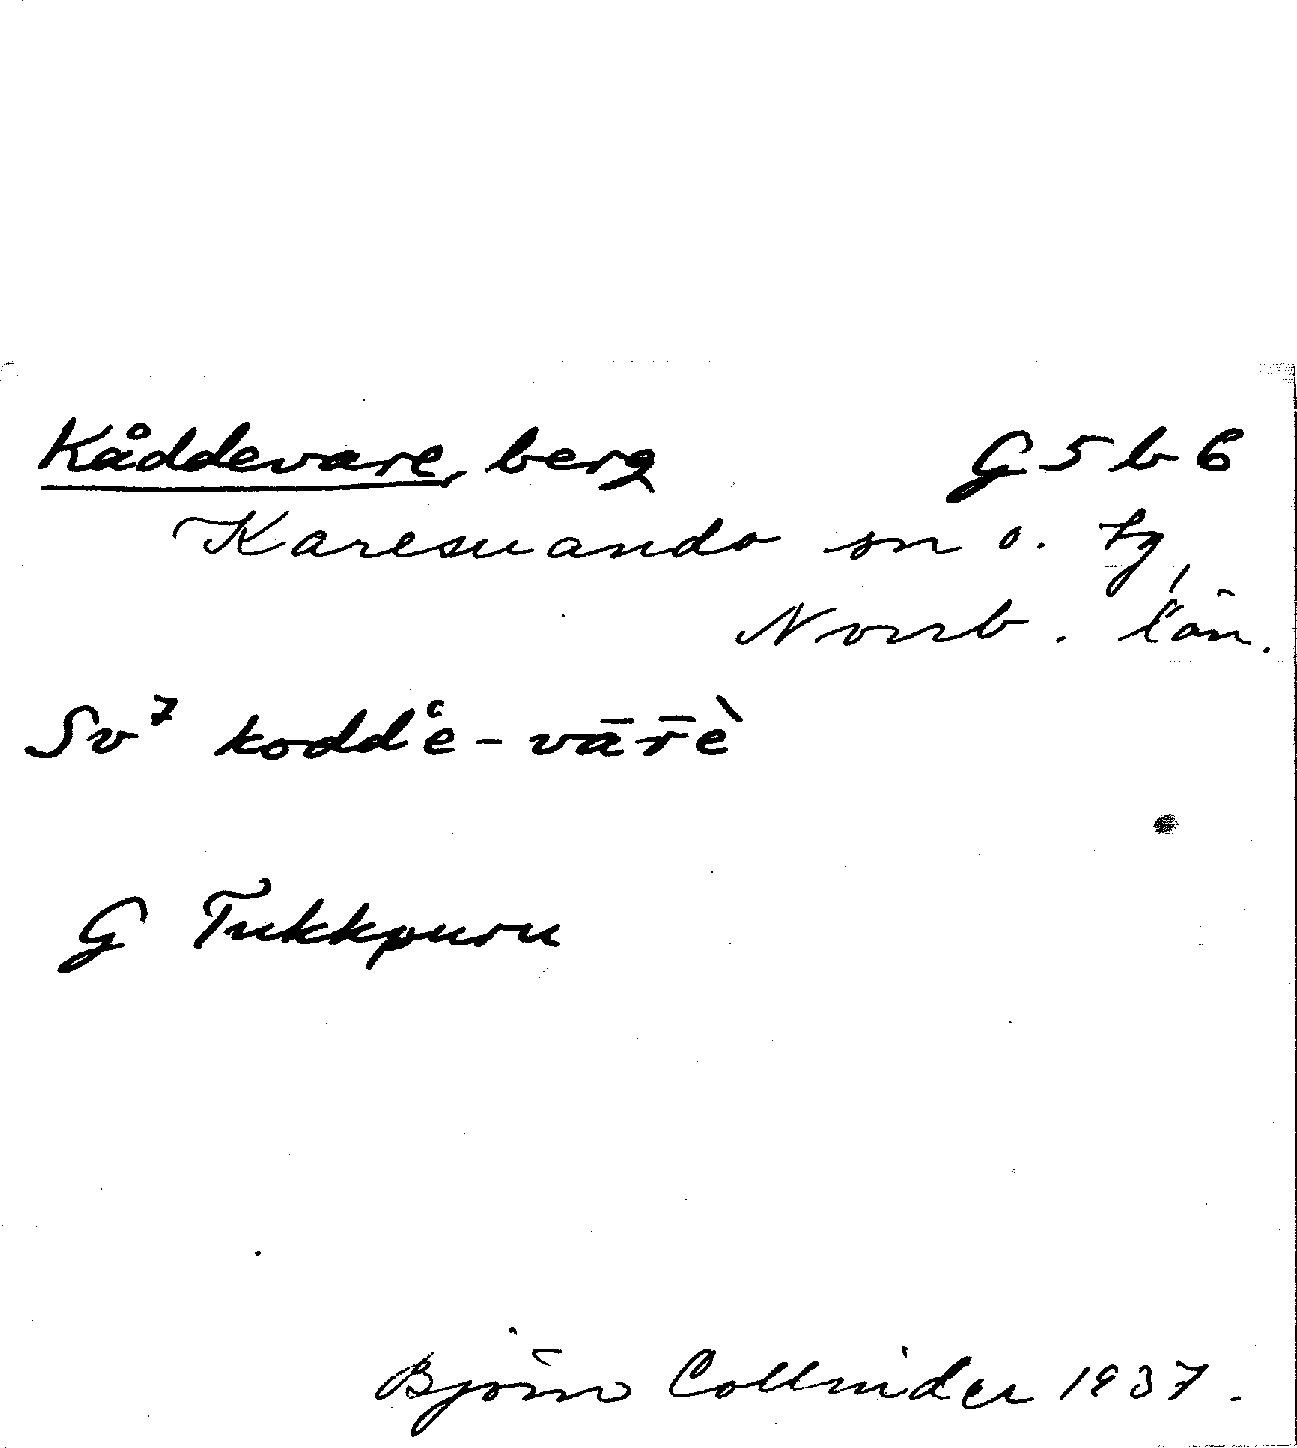 Kåddevare, berg G5b6
Karesuando sn o. tg,
Norrb. län.
Sv⁷ koddʿe-vār̄è
G Tukkpuru
Björn Collinder 1937.